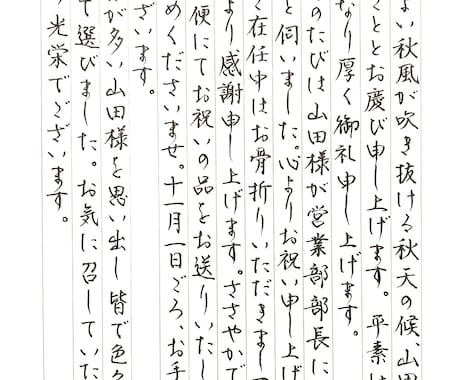 よい秋風が吹き抜ける秋天の候、山田
こととお慶び申し上げます。平素は
なり厚く御礼申し上げます。
のたびは山田様が営業部部長に
と伺いました。心よりお祝い申し上げ
ご在任中はお骨折りいただきまして
より感謝申し上げます。ささやかで
便にてお祝いの品をお送りいたし
めくださいませ。十一月一日ごろ、お手
ざいます。
が多い山田様を思い出し皆で色々
て選びました。お気に召していた
光栄でございます。